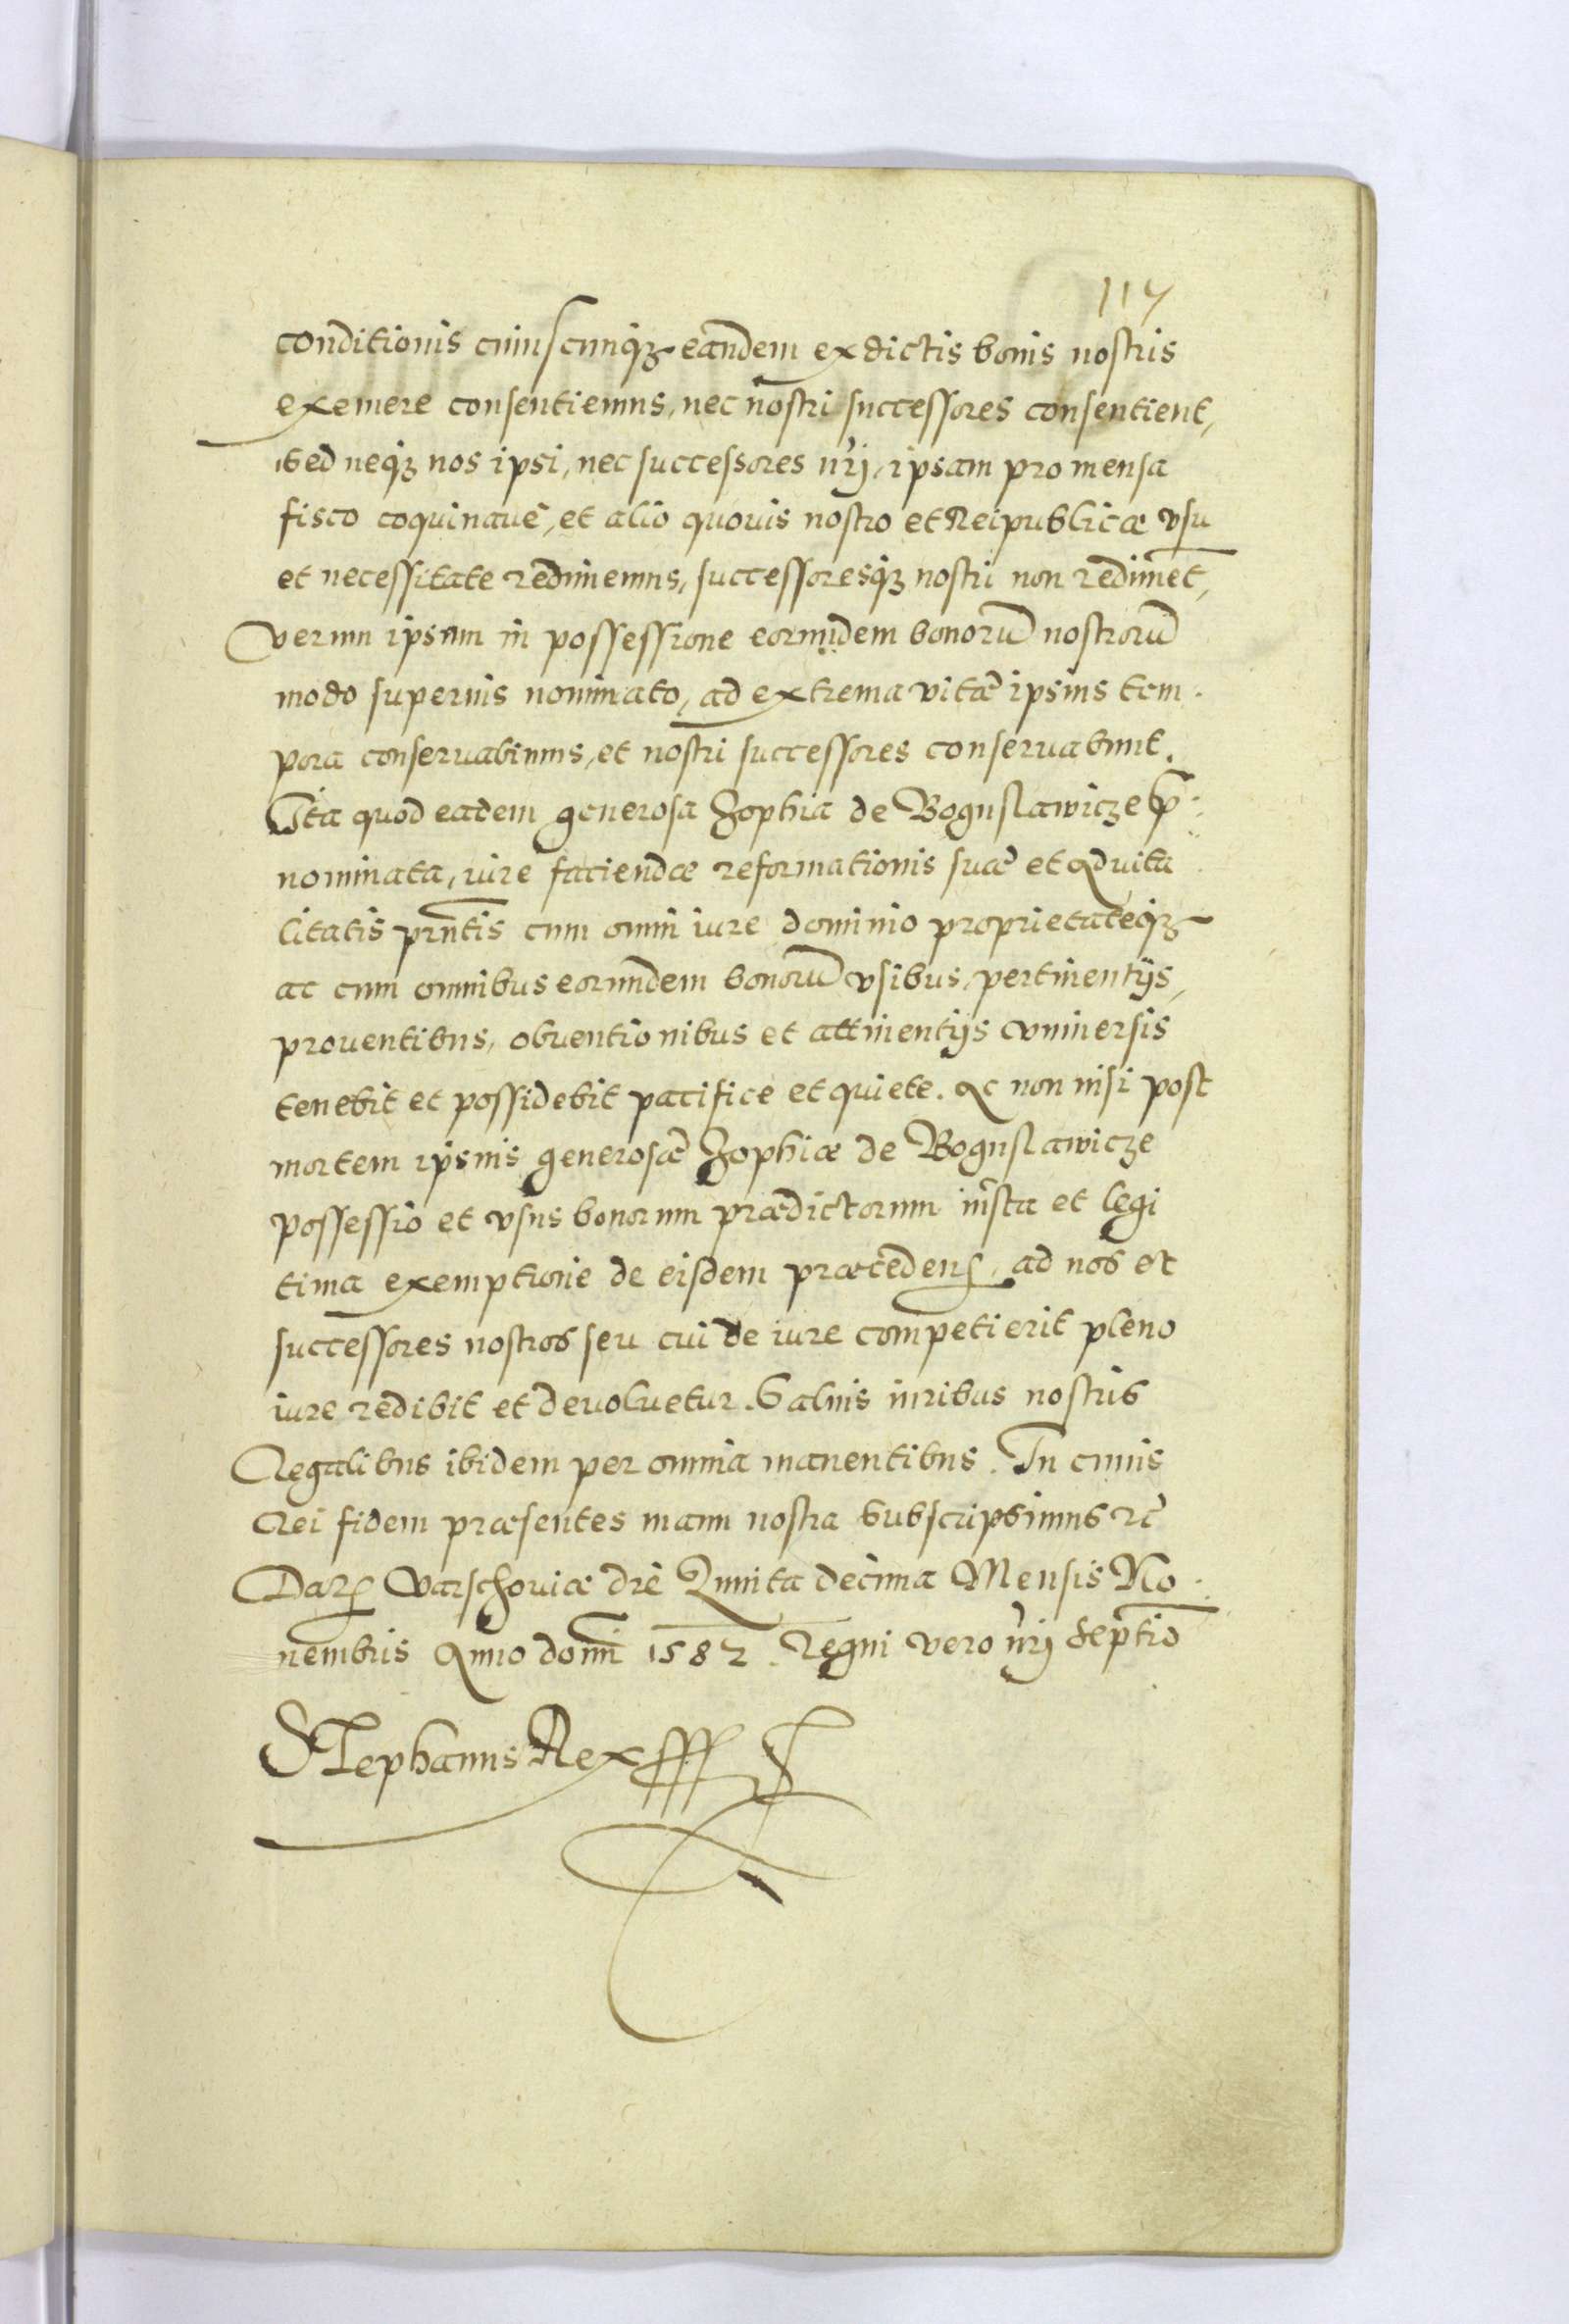 117
conditionis cuiuscunq₃ eandem ex dictis bonis nostris
exemere consentiemus, nec nostri successores consentient,
Sed neq₃ nos ipsi, nec successores nri, ipsam pro mensa
fisco coquinave, et alio quovis nostro et Reipublicæ vsu
et necessitate redimemus, successoresq₃ nostri non rediment,
verum ipsam in possessione eorundem bonorū nostrorū
modo superius nominato, ad extrema vitæ ipsius tem-
pora conservabimus, et nostri successores conservabunt.
Ita quod eadem generosa Zophia de Boguslawicze p̄-
nominata, iure faciendæ reformationis suæ et Advita
litatis prn̄tis cum omni iure dominio proprietateq₃
ac cum omnibus eorundem bonorū vsibus, pertinentijs,
proventibus, obventionibus et attinentijs vniversis
tenebit et possidebit pacifice et quiete. Ac non nisi post
mortem ipsius generosæ Zophiæ de Boguslawicze
possessio et vsus bonorum prædictorum iusta et legi
tima exemptione de eisdem præcedens, ad nos et
successores nostros seu cui de iure competierit pleno
iure redibit et devoluetur. Salvis iuribus nostris
Regalibus ibidem per omnia manentibus. In cuius
rei fidem præsentes manu nostra subscripsimus rc̄
Dat Varschoviæ die Quinta decima Mensis No-
uembris Anno domi 1582. Regni vero nrj septio
Stephanus Rex